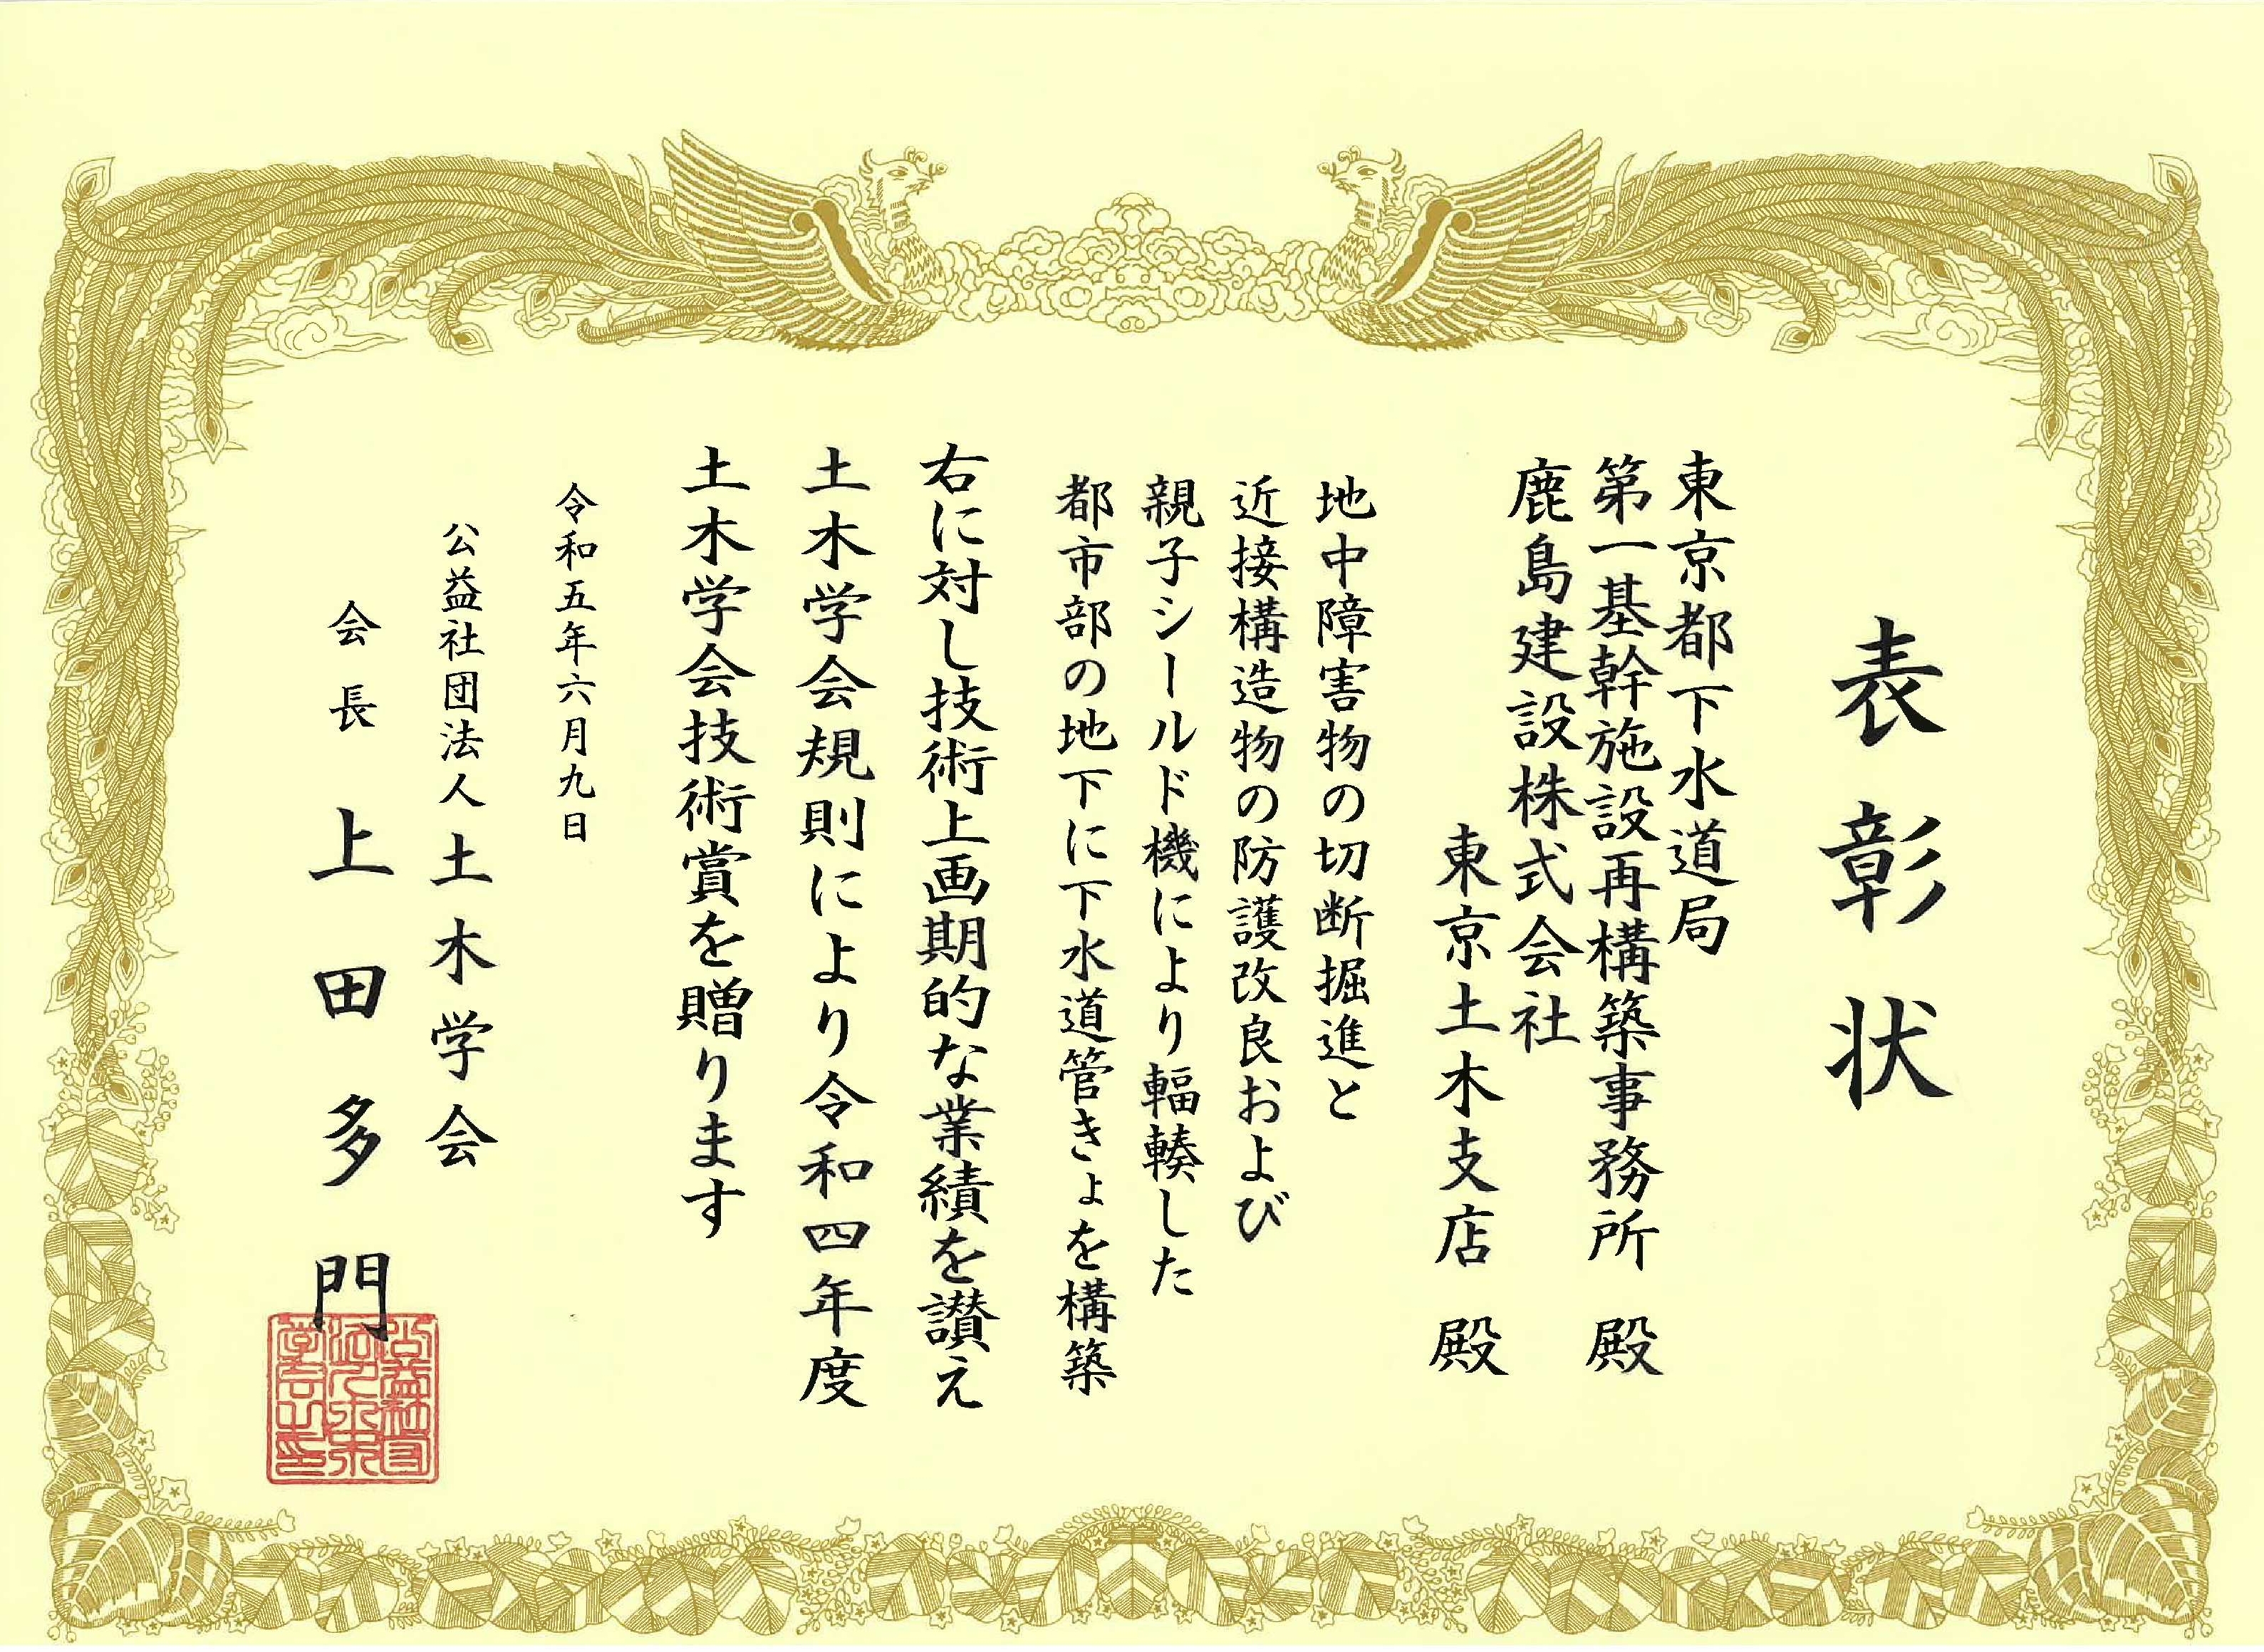 表彰状
東京都下水道局
第一基幹施設再構築事務所 殿
鹿島建設株式会社
東京土木支店 殿
地中障害物の切断掘進と
近接構造物の防護改良および
親子シールド機により輻輳した
都市部の地下に下水道管きょを構築
右に対し技術上画期的な業績を讃え
土木学会規則により令和四年度
土木学会技術賞を贈ります
令和五年六月九日
公益社団法人 土木学会
会長 上田多門
公益社団
法人土木
学会之印